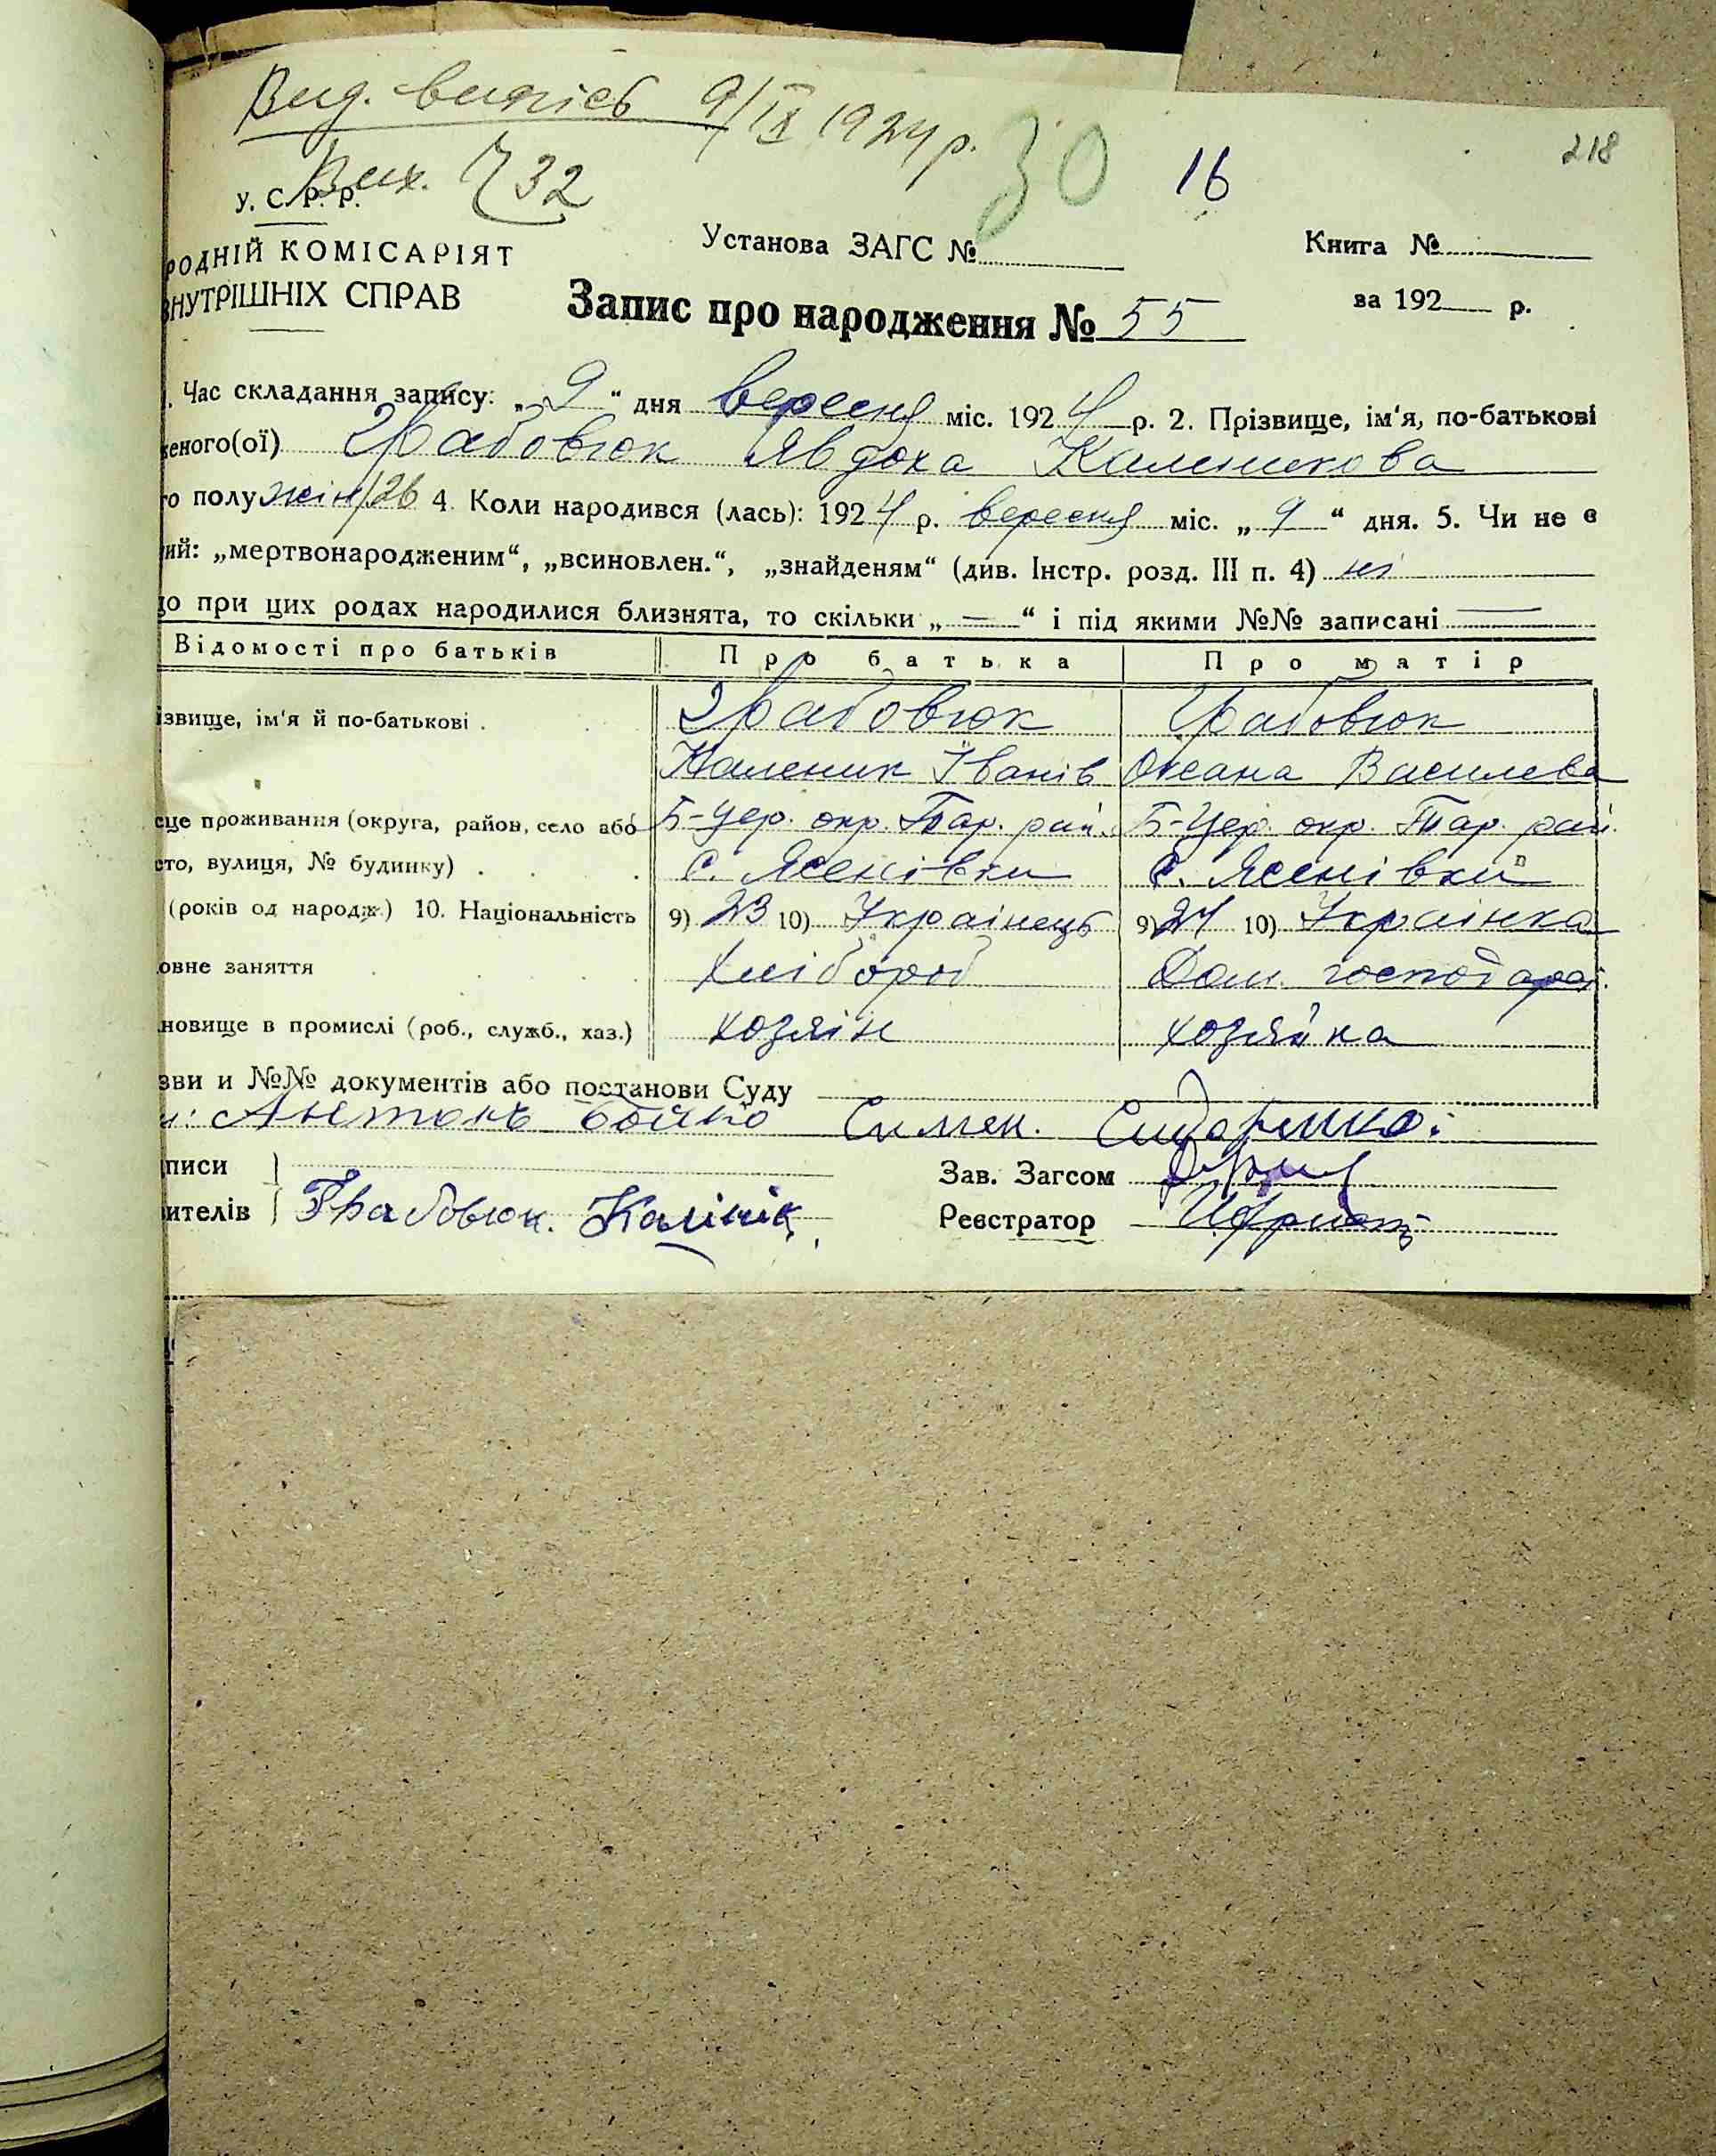 Вид. випись 9/IX 1924 р.
Вих. Ч 32
30 16 218
У. С. Р. Р.
РОДНІЙ КОМІСАРІЯТ
ВНУТРІШНІХ СПРАВ
Установа ЗАГС №
Книга №
за 192 р.
Запис про народження № 55
. Час складання запису: „ 9 “ дня вересня міс. 1924 р. 2. Прізвище, ім'я, по-батькові
женого(ої) Грабовюк Явдоха Каленикова
го полу жін/26 4. Коли народився (лась): 1924 р. вересня міс. „ 9 “ дня. 5. Чи не є
ий: „мертвонародженим“, „всиновлен.“, „знайденям“ (див. Інстр. розд. III п. 4) ні
що при цих родах народилися близнята, то скільки „ — “ і під якими №№ записані —
Відомості про батьків Про батька Про матір
ізвище, ім'я й по-батькові . Грабовюк Грабовюк
Каленик Іванів Оксана Василева
сце проживання (округа, район, село або Б-Цер. окр. Тар. рай. Б-Цер. окр. Тар. рай.
сто, вулиця, № будинку) . с. Ясенівки с. Ясенівки
(років од народж.) 10. Національність 9) 23 10) Українець 9) 24 10) Українка
овне заняття Хлібороб Дом. господар.
новище в промислі (роб., служб., хаз.) хозяін хозяйка
зви и №№ документів або постанови Суду
Антонъ Бойко Симен. Сидоренко.
писи
ителів Грабовюк. Калінік
Зав. Загсом
Реєстратор